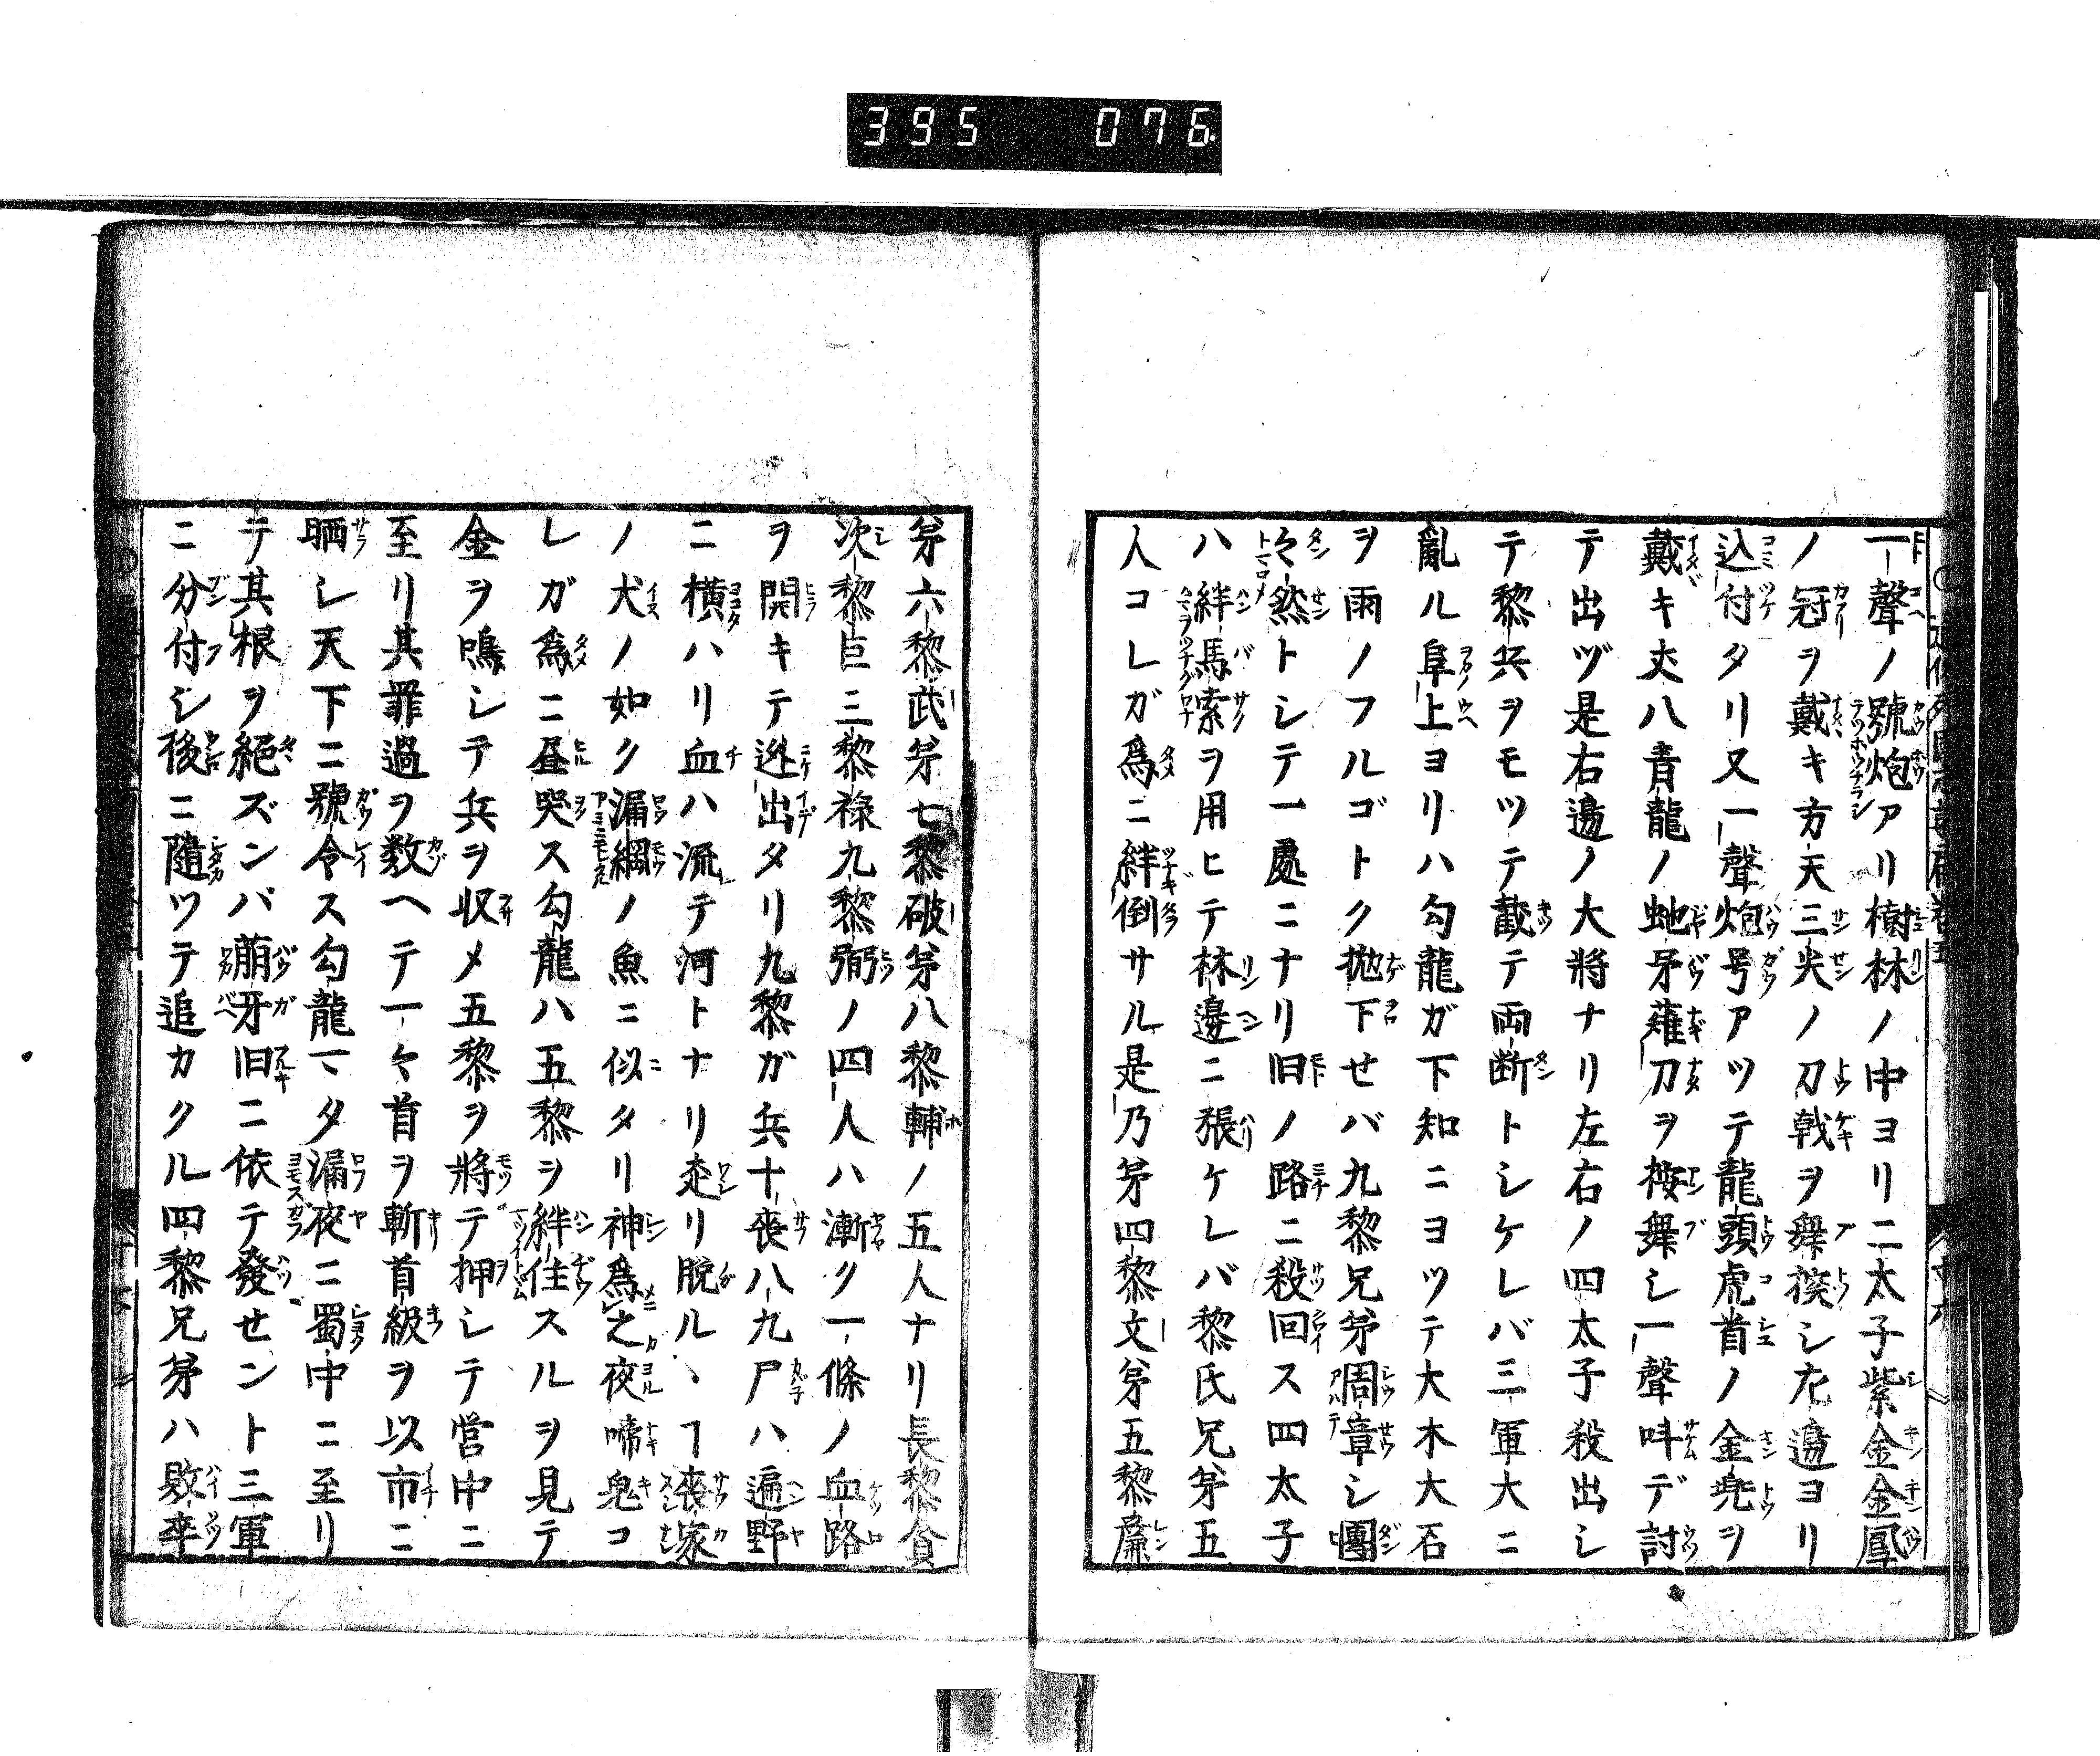 395 076
一聲ノ號炮アリ樹林ノ中ヨリ二太子紫金金鳳
ノ冠ヲ戴キ方天三尖ノ刀戟ヲ舞揆シ左邉ヨリ
込付タリ又一聲炮号アツテ龍頭虎首ノ金兠ヲ
戴キ丈八青龍ノ虵矛薙刀ヲ按舞シ一聲呌デ討
テ出ヅ是右邉ノ大將ナリ左右ノ四太子殺出シ
テ黎兵ヲモツテ截テ両断トシケレバ三軍大ニ
亂ル阜上ヨリハ勾龍ガ下知ニヨツテ大木大石
ヲ雨ノフルゴトク抛下せバ九黎兄弟周章シ團
々然トシテ一處ニナリ旧ノ路ニ殺回ス四太子
ハ絆馬索ヲ用ヒテ林邊ニ張ケレバ黎氏兄弟五
人コレガ爲ニ絆倒サル是乃弟四黎文弟五黎廉
弟六黎武弟七黎破弟八黎輔ノ五人ナリ長黎貪
次黎巨三黎禄九黎弼ノ四人ハ漸ク一條ノ血路
ヲ開キテ迯出タリ九黎ガ兵十喪八九尸ハ遍野
ニ横ハリ血ハ流テ河トナリ迯リ脱ルヽヿ喪家
ノ犬ノ如ク漏網ノ魚ニ似タリ神爲之夜啼鬼コ
レガ爲ニ昼哭ス勾龍ハ五黎ヲ絆住スルヲ見テ
金ヲ鳴シテ兵ヲ収メ五黎ヲ將テ押シテ営中ニ
至リ其罪過ヲ数ヘテ一々首ヲ斬首級ヲ以市ニ
晒シ天下ニ號令ス勾龍マタ漏夜ニ蜀中ニ至リ
テ其根ヲ絕ズンバ萠牙旧ニ依テ發せント三軍
ニ分付シ後ニ隨ツテ追カクル四黎兄弟ハ敗卒